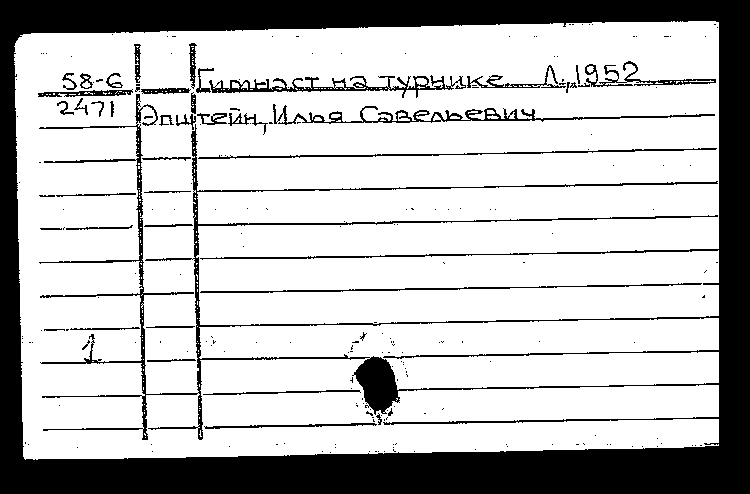 58-6 Гимнаст на турнике. Л., 1952
2471 Эпштейн, Илья Савельевич.
1